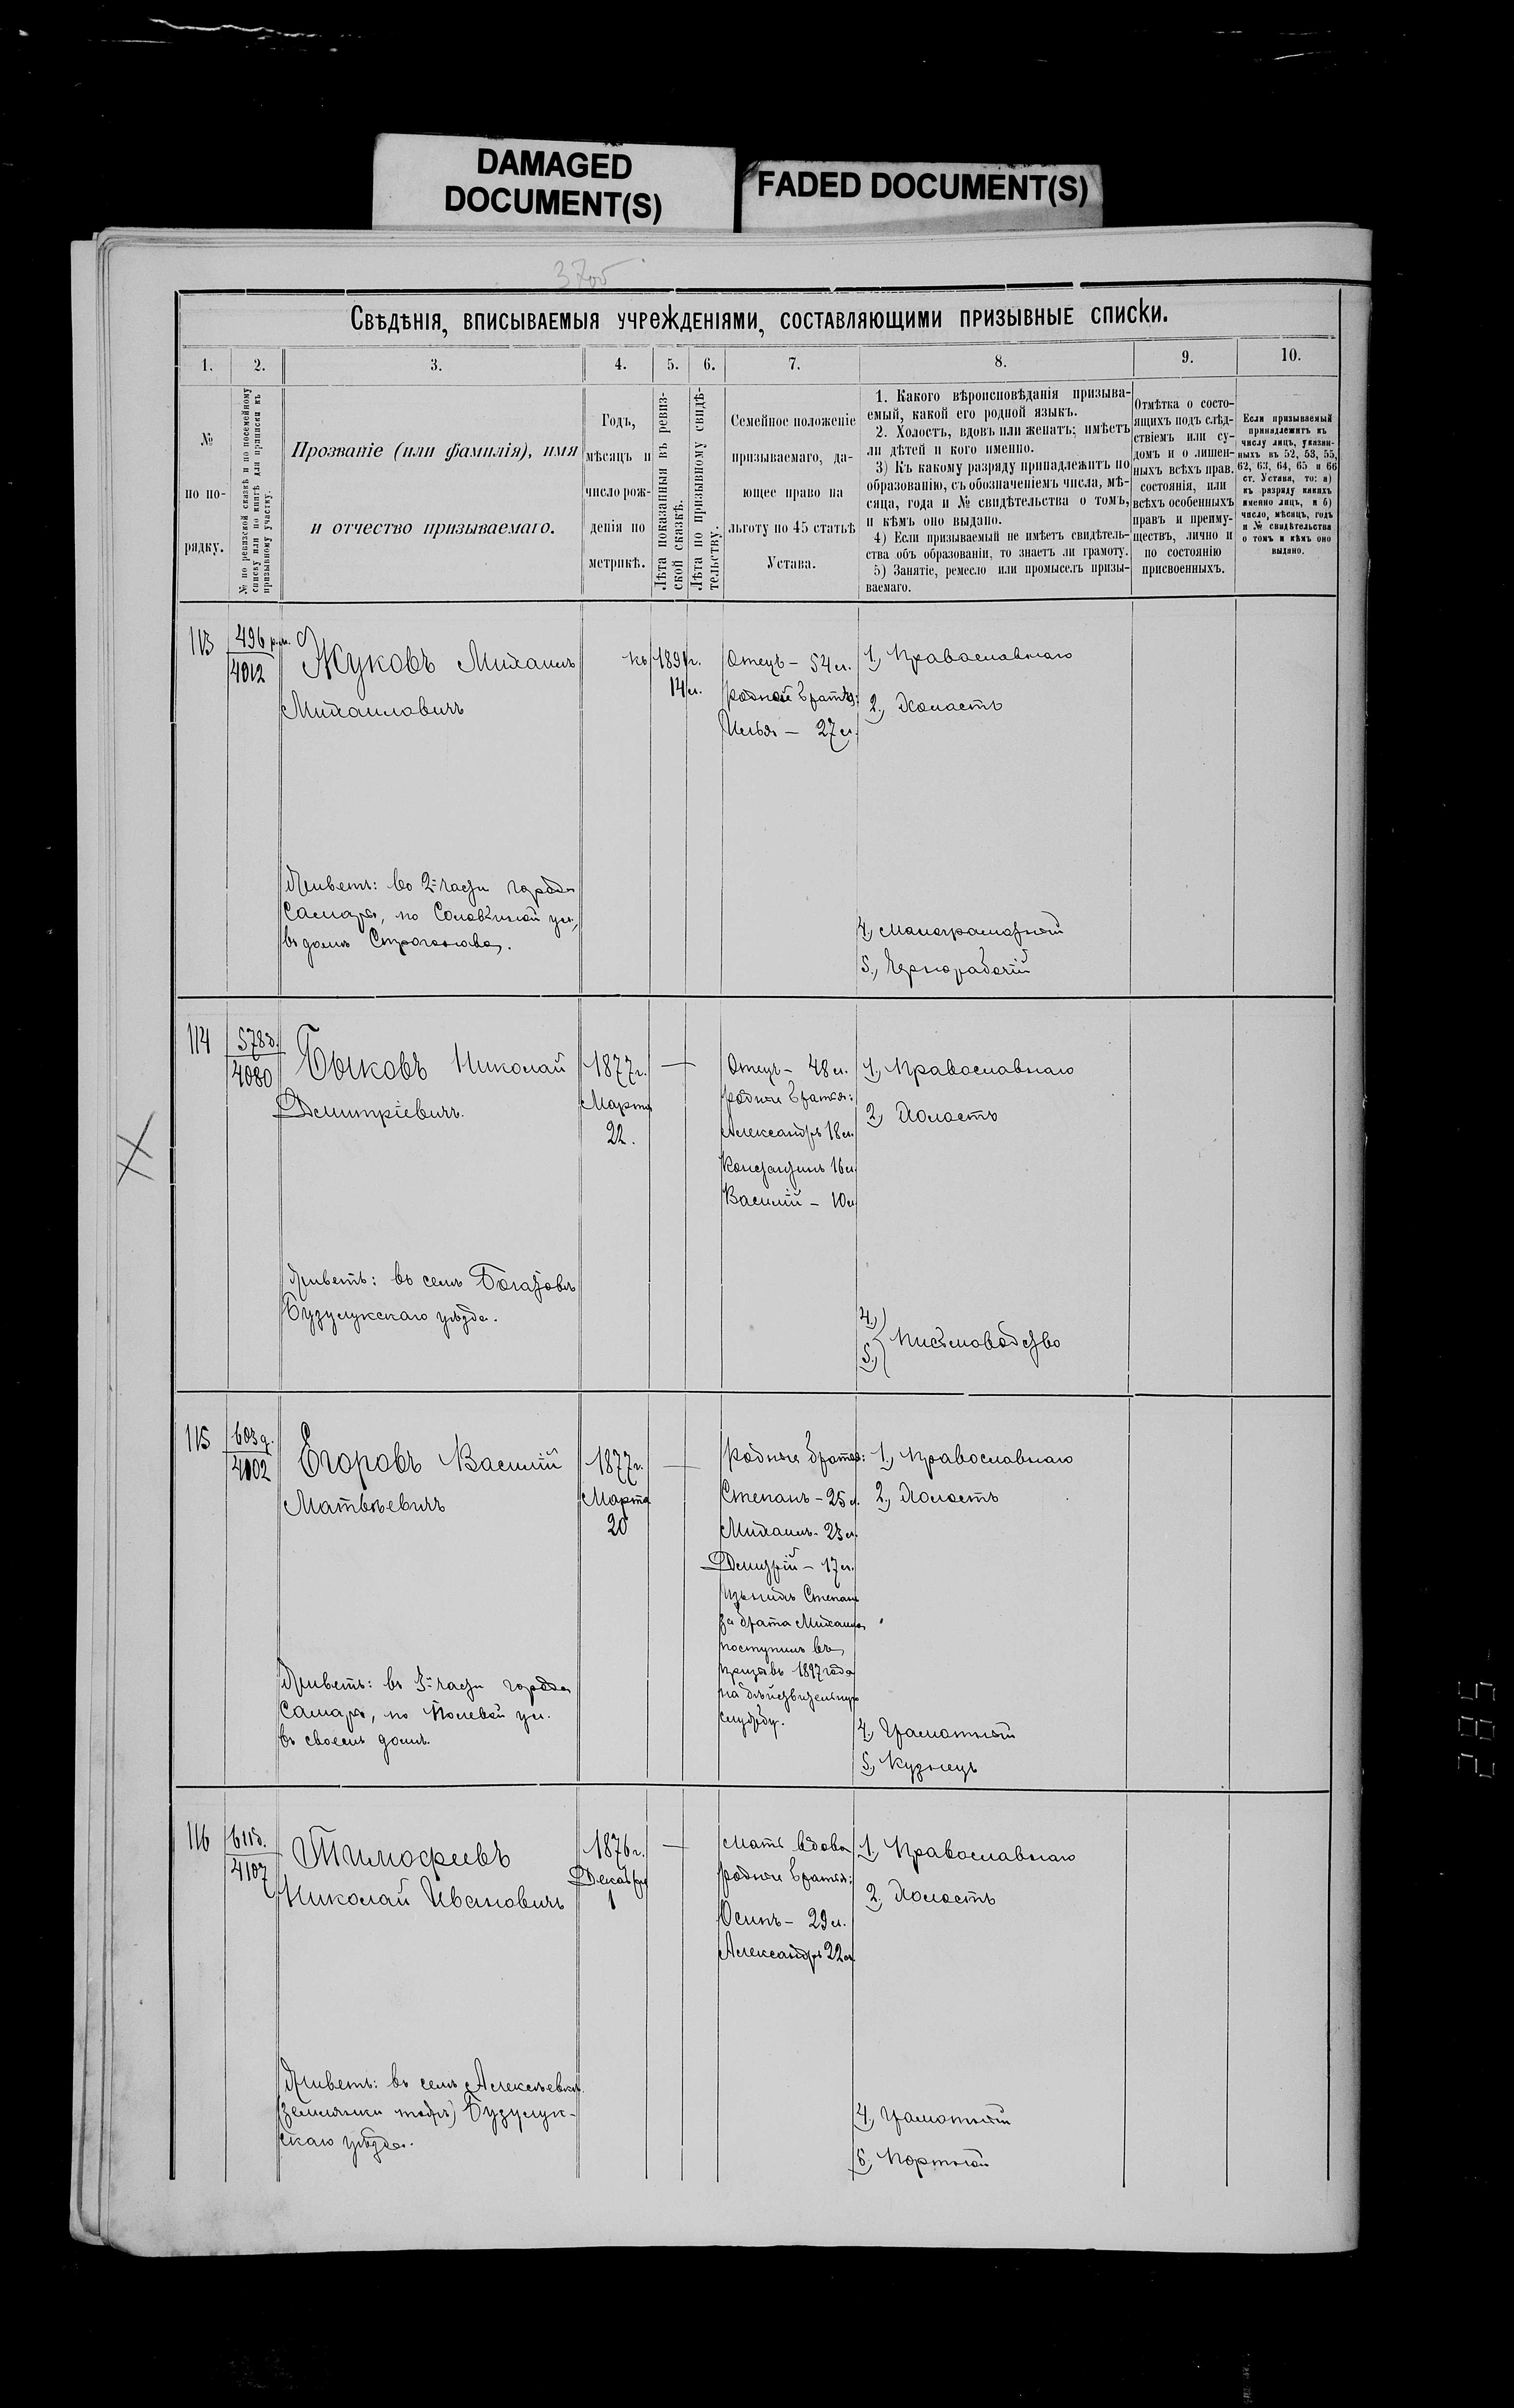 DAMAGED
DOCUMENT(S)
FADED DOCUMENT(S)
Свѣдѣнія, вписываемыя учрежденіями, составляющими призывные списки.
1.
2.
3.
4.
5.
6.
7.
8.
9.
10.
№
по по-
рядку.
№ по ревизской сказкѣ и по посемейному
списку или по книгѣ для приписки къ
призывному участку.
Прозваніе (или фамилія), имя
и отчество призываемаго.
Годъ,
мѣсяцъ и
число рож-
денія по
метрикѣ.
Лѣта показанныя въ ревиз-
ской сказкѣ.
Лѣта по призывному свидѣ-
тельству.
Семейное положеніе
призываемаго, да-
ющее право на
льготу по 45 статьѣ
Устава.
1. Какого вѣроисповѣданія призыва-
емый, какой его родной языкъ.
2. Холостъ, вдовъ или женатъ; имѣетъ
ли дѣтей и кого именно.
3) Къ какому разряду принадлежитъ по
образованію, съ обозначеніемъ числа, мѣ-
сяца, года и № свидѣтельства о томъ,
и кѣмъ оно выдано.
4) Если призываемый не имѣетъ свидѣтель-
ства объ образованіи, то знаетъ ли грамоту.
5) Занятіе, ремесло или промыселъ призы-
ваемаго.
Отмѣтка о состо-
ящихъ подъ слѣд-
ствіемъ или су-
домъ и о лишен-
ныхъ всѣхъ прав.
состоянія, или
всѣхъ особенныхъ
правъ и преиму-
ществъ, лично и
по состоянію
присвоенныхъ.
Если призываемый
принадлежитъ къ
числу лицъ, указан-
ныхъ въ 52, 53, 55,
62, 63, 64, 65 и 66
ст. Устава, то: а)
къ разряду какихъ
именно лицъ, и б)
число, мѣсяцъ, годъ
и № свидѣтельства
о томъ и кѣмъ оно
выдано.
113
496 р.м.
4012
Жуковъ Михаилъ
Михаиловичъ
Живетъ: во 2й части города
Самары, по ул.,
въ домѣ Строганова.
къ 1891 г.
14 л.
Отецъ – 54 л.
родной братъ:
Илья – 27 л.
1., Православнаго
2., Холостъ
4., Малограмотный
5., Чернорабочій
114
578 д.
4080
Быковъ Николай
Дмитріевичъ.
Живетъ: въ селѣ Богатовѣ
Бузулукскаго уѣзда.
1877 г.
Марта
22.
Отецъ – 48 л.
родные братья:
Александръ 18 л.
Константинъ 16 л.
Василій – 10 л.
1., Православнаго
2., Холостъ
4.,
5.,
Письмоводство
115
603 д.
4102
Егоровъ Василій
Матвѣевичъ
Живетъ: въ 3й части города
Самары, по Полевой ул.
въ своемъ домѣ.
1877 г.
Марта
20
родные братья:
Степанъ – 25 л.
Михаилъ – 23 л.
Дмитрій – 17 л.
Изъ нихъ Степанъ
за брата Михаила
поступилъ въ
призывъ 1897 года
на дѣйствительную
службу.
1., Православнаго
2., Холостъ
4., Грамотный
5., Кузнецъ
116
611 д.
4107
Тимофеевъ
Николай Ивановичъ
Живетъ: въ селѣ Алексѣевкѣ
(Землянки тожъ) Бузулук-
скаго уѣзда.
1876 г.
Декабря
1
Мать вдова
родные братья:
Осипъ – 29 л.
Александръ 22 л.
1., Православнаго
2., Холостъ
4., Грамотный
5., Портной
285